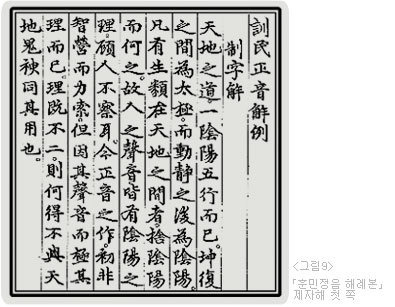 訓民正音解例
制字解
天地之道。一陰陽五行而已。坤復
之間為太極。而動静之後為陰陽。
凡有生類在天地之間者。捨陰陽
而何之。故人之聲音。皆有陰陽之
理。顧人不察耳。今正音之作。初非
智營而力索。但因其聲音而極其
理而已。理既不二。則何得不與天
地鬼神同其用也。
<그림9>
「훈민정음 해례본」
제자해 첫 쪽